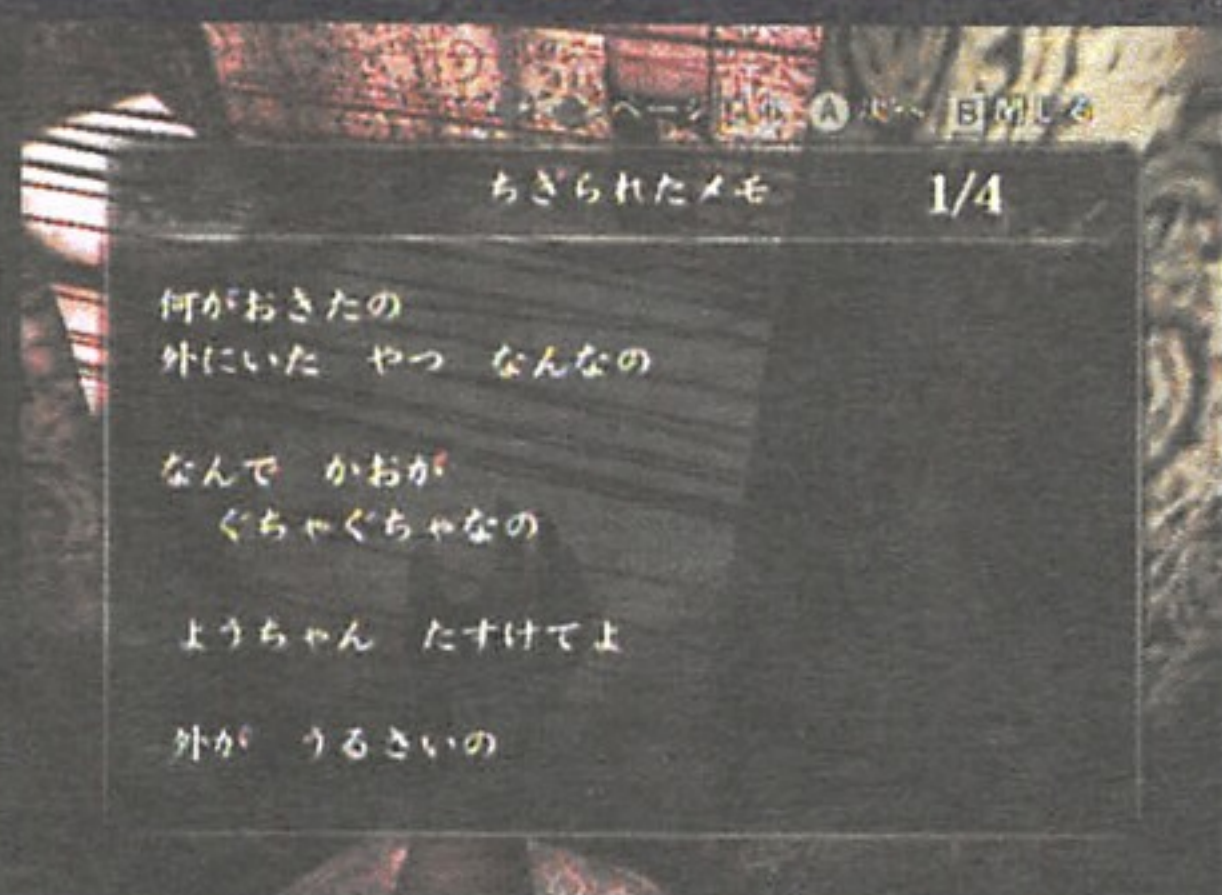 Ⓐ次へ B 閉じる
ちぎられたメモ 1/4
何がおきたの
外にいた　やつ　なんなの
なんで　かおが
ぐちゃぐちゃなの
ようちゃん　たすけてよ
外が　うるさいの